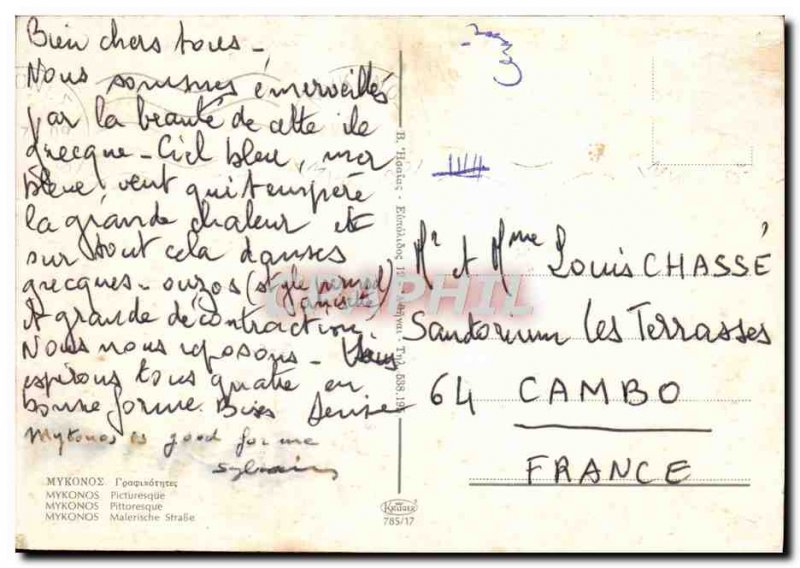 Bien chers tous -
Nous sommes émerveillés
par la beauté de cette ile
grecque - Ciel bleu, mer
bleue, vent qui tempère
la grande chaleur et
sur tout cela danses
grecques - ouzos (style pernod
anisette)
et grande décontraction.
Nous nous reposons -
espérons tous quatre en
bonne forme. Bises Denise
Mykonos is good for me
Sylvain
ΜΥΚΟΝΟΣ Γραφικότητες
MYKONOS Picturesque
MYKONOS Pittoresque
MYKONOS Malerische Straße
Mr et Mme Louis CHASSÉ
Sanatorium Les Terrasses
64 CAMBO
FRANCE
785/17